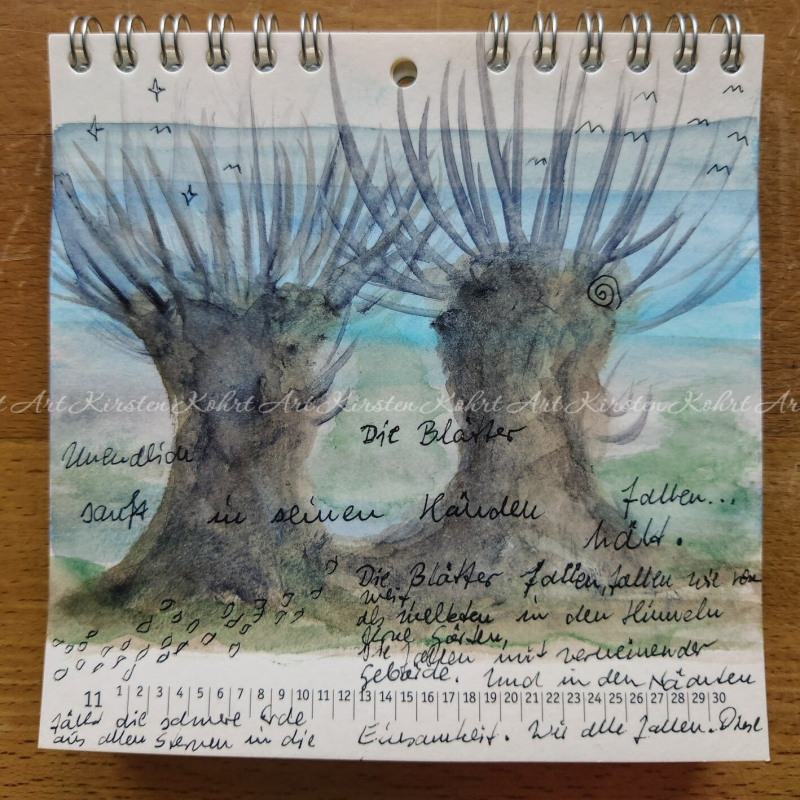 Art Kirsten Kohrt Art Kirsten Kohrt Art Kirsten Kohrt Art
Die Blätter
Unendlich
fallen...
sanft in seinen Händen
hält.
Die Blätter fallen, fallen wie von
weit
als welkten in den Himmeln
ferne Gärten,
sie fallen mit verneinender
Gebärde. Und in den Nächten
11 1 2 3 4 5 6 7 8 9 10 11 12 13 14 15 16 17 18 19 20 21 22 23 24 25 26 27 28 29 30
fällt die schwere Erde
aus allen Sternen in die Einsamkeit. Wir alle fallen. Diese